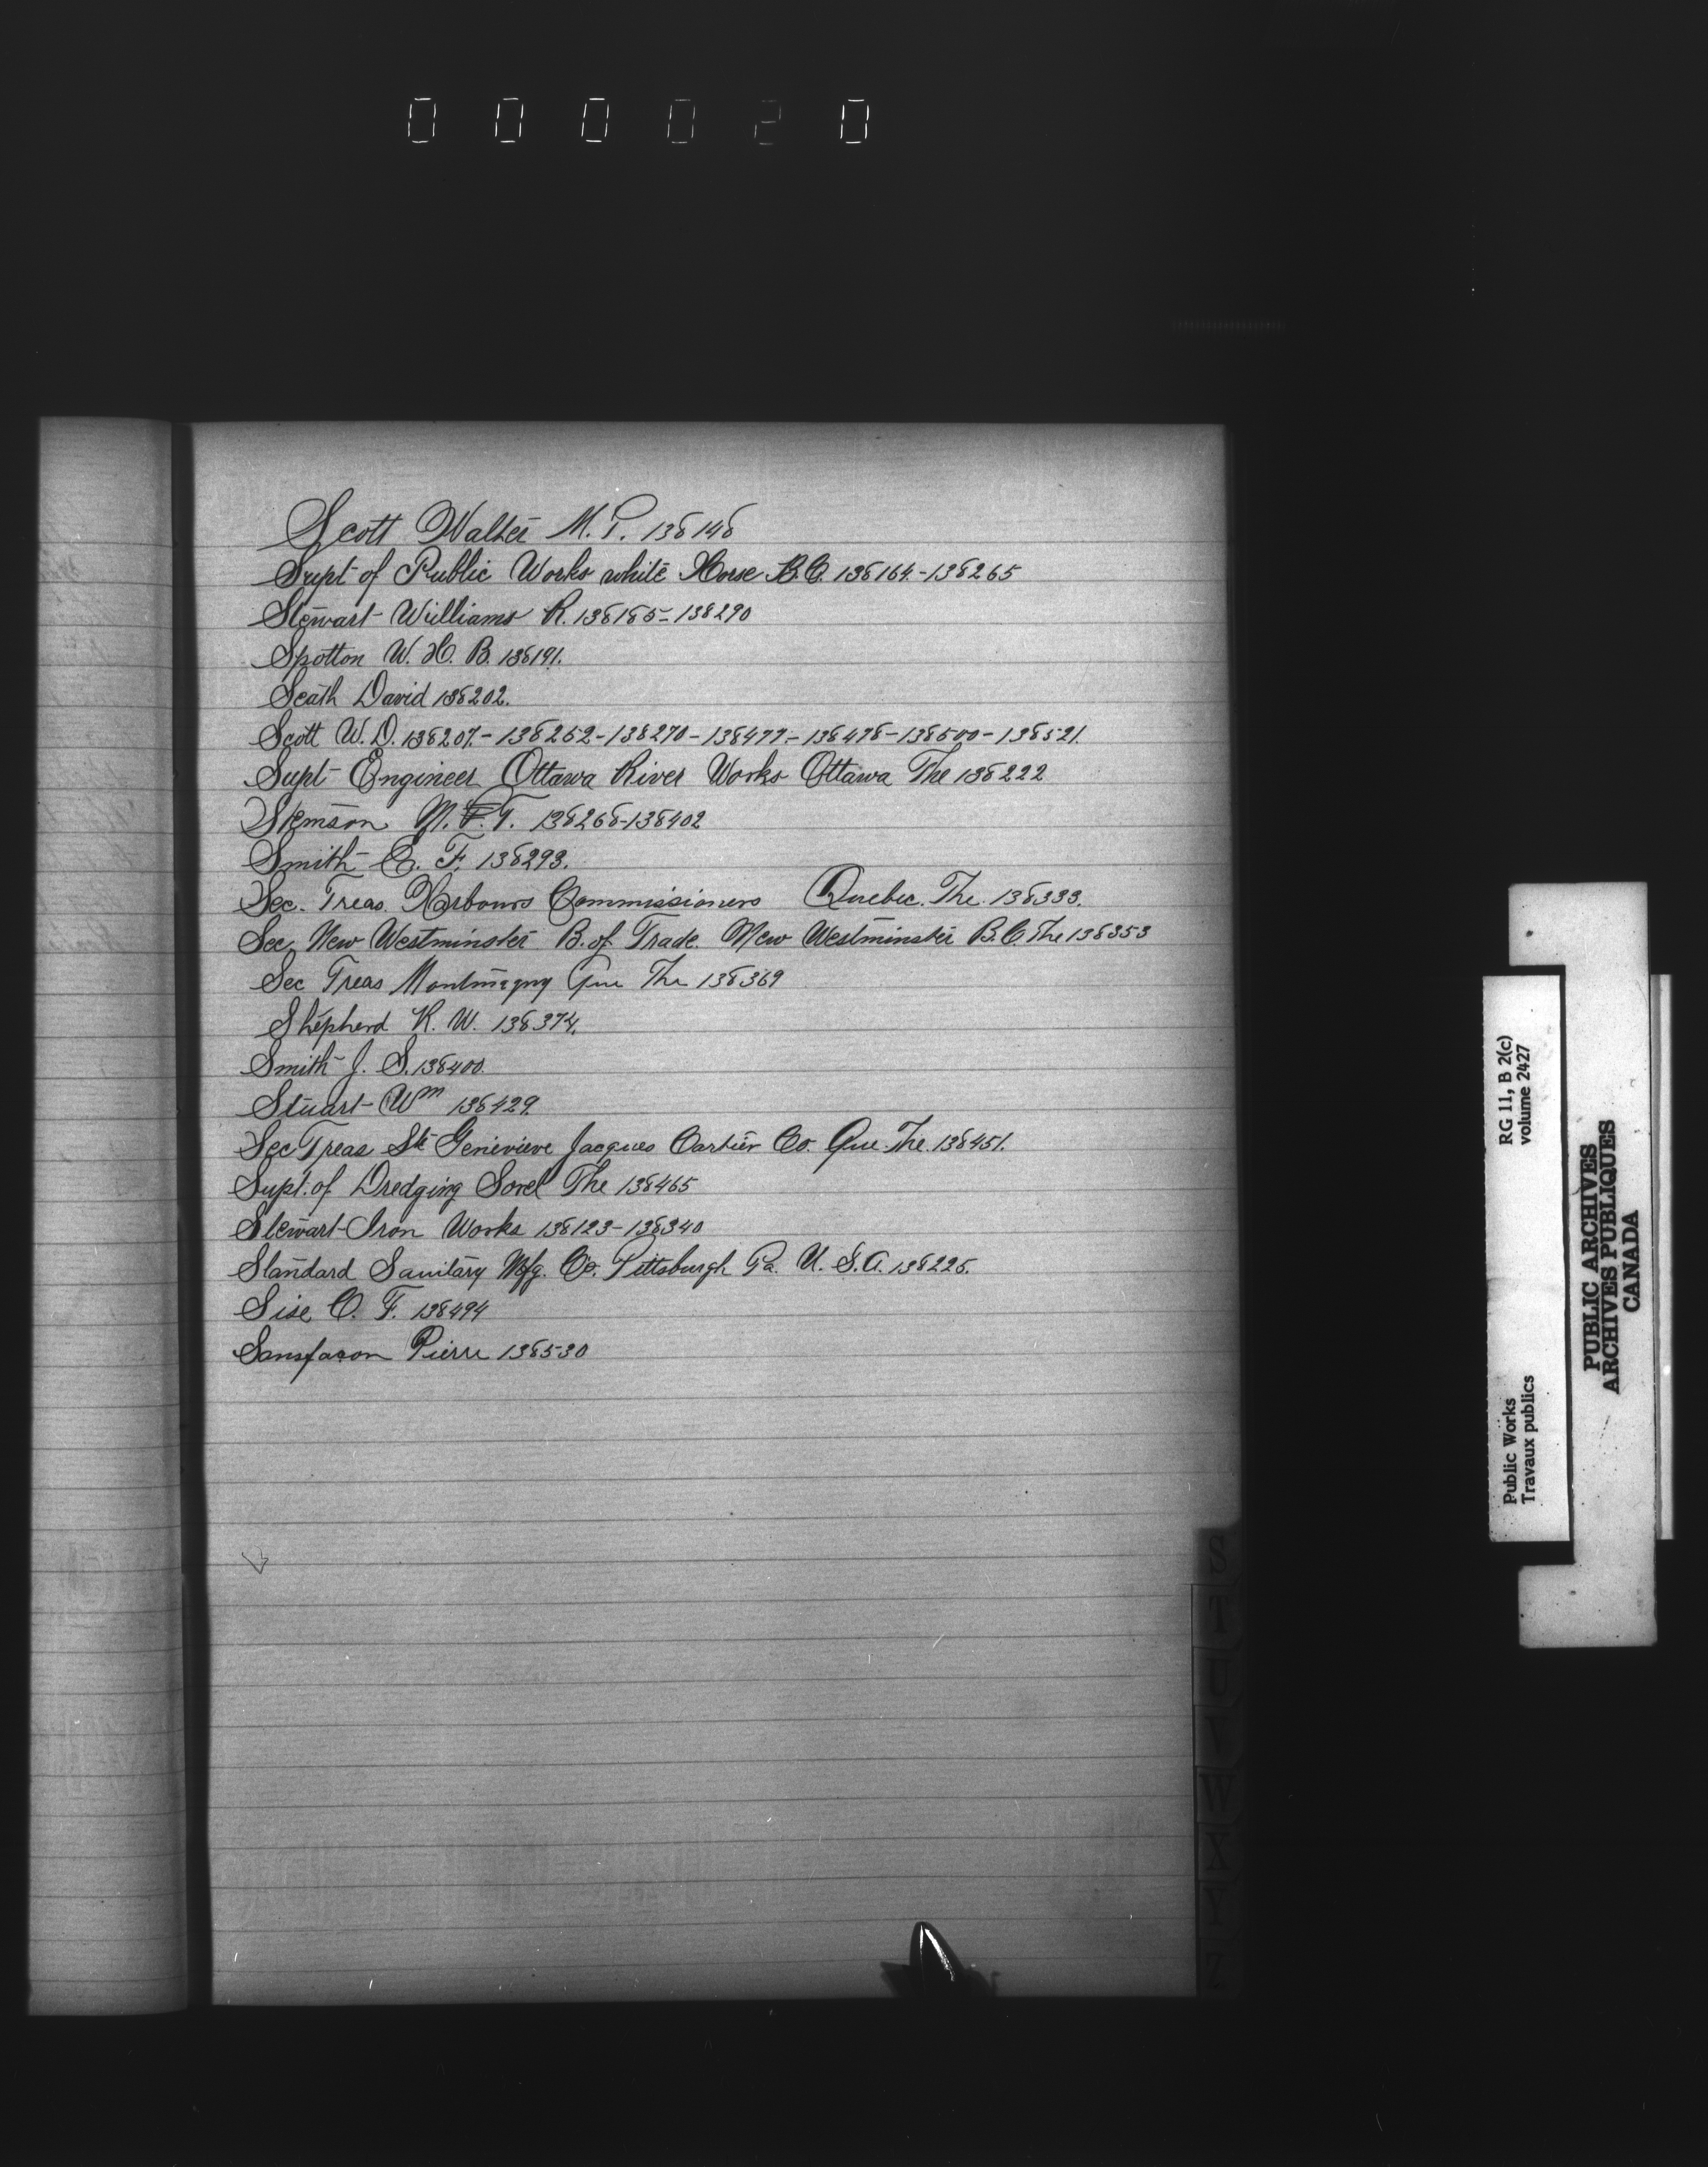 000020
Scott Walter M. P. 138148
Supt of Public Works white Horse B.C. 138164.-138265
Stewart Williams R. 138185-138290
Spotton W. H. B. 138191.
Seath David 138202.
Scott W. D. 138207.-138262-138270-138477.-138478-138500-138521.
Supt Engineer Ottawa River Works Ottawa The 138222
M. F. T. 138268-138402
Smith E. F. 138293.
Sec. Treas. Harbours Commissioners Quebec. The. 138333.
Sec. New Westminster B. of Trade. New Westminster B.C The 138353
Sec Treas Montmagny Que The 138369
Shepherd R. W. 138374.
Smith J. S. 138400.
Stuart Wm 138429.
Sec Treas Ste Genevieve Jacques Cartier Co. Que. The. 138451.
Supt. of Dredging Sorel The 138465
Stewart Iron Works 138123-138340
Standard Sanitary Mfg. Co. Pittsburgh Pa. U. S. A. 138225.
Sise C. F. 138494
Sansfacon Pierre 138530
S
T
U
V
W
X
Y
Z
RG 11, B 2(c)
volume 2427
Public Works
Travaux publics
PUBLIC ARCHIVES
ARCHIVES PUBLIQUES
CANADA